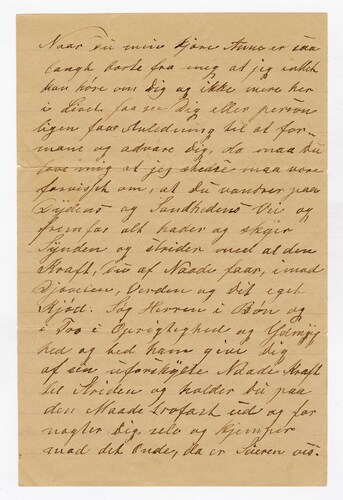 Naar Du min kjære Anne er saa
langt borte fra mig at jeg intet
kan høre om Dig og ikke mere her
i Livet faa see Dig eller person
ligen faar Anledning til at for-
mane og advare Dig, da maa Du
love mig at jeg maa være
forvisset om, at Du vandrer paa
Dydens og Sandhedens Vei og
fremfor alt hader og skyer
Synden og strider med al den
Kraft, Du af Naade faar, imod
Djævelen, Verden og Dit eget
Kjød. Søg Herren i Bøn og
i Tro i Oprigtighed og Ydmyg
hed og bed ham give Dig
af sin uforskyldte Naade Kraft
til Striden og holder Du paa
den Maade trofast ud og for
nægter Dig selv og kjemper
mod det Onde, da er Seieren vis.